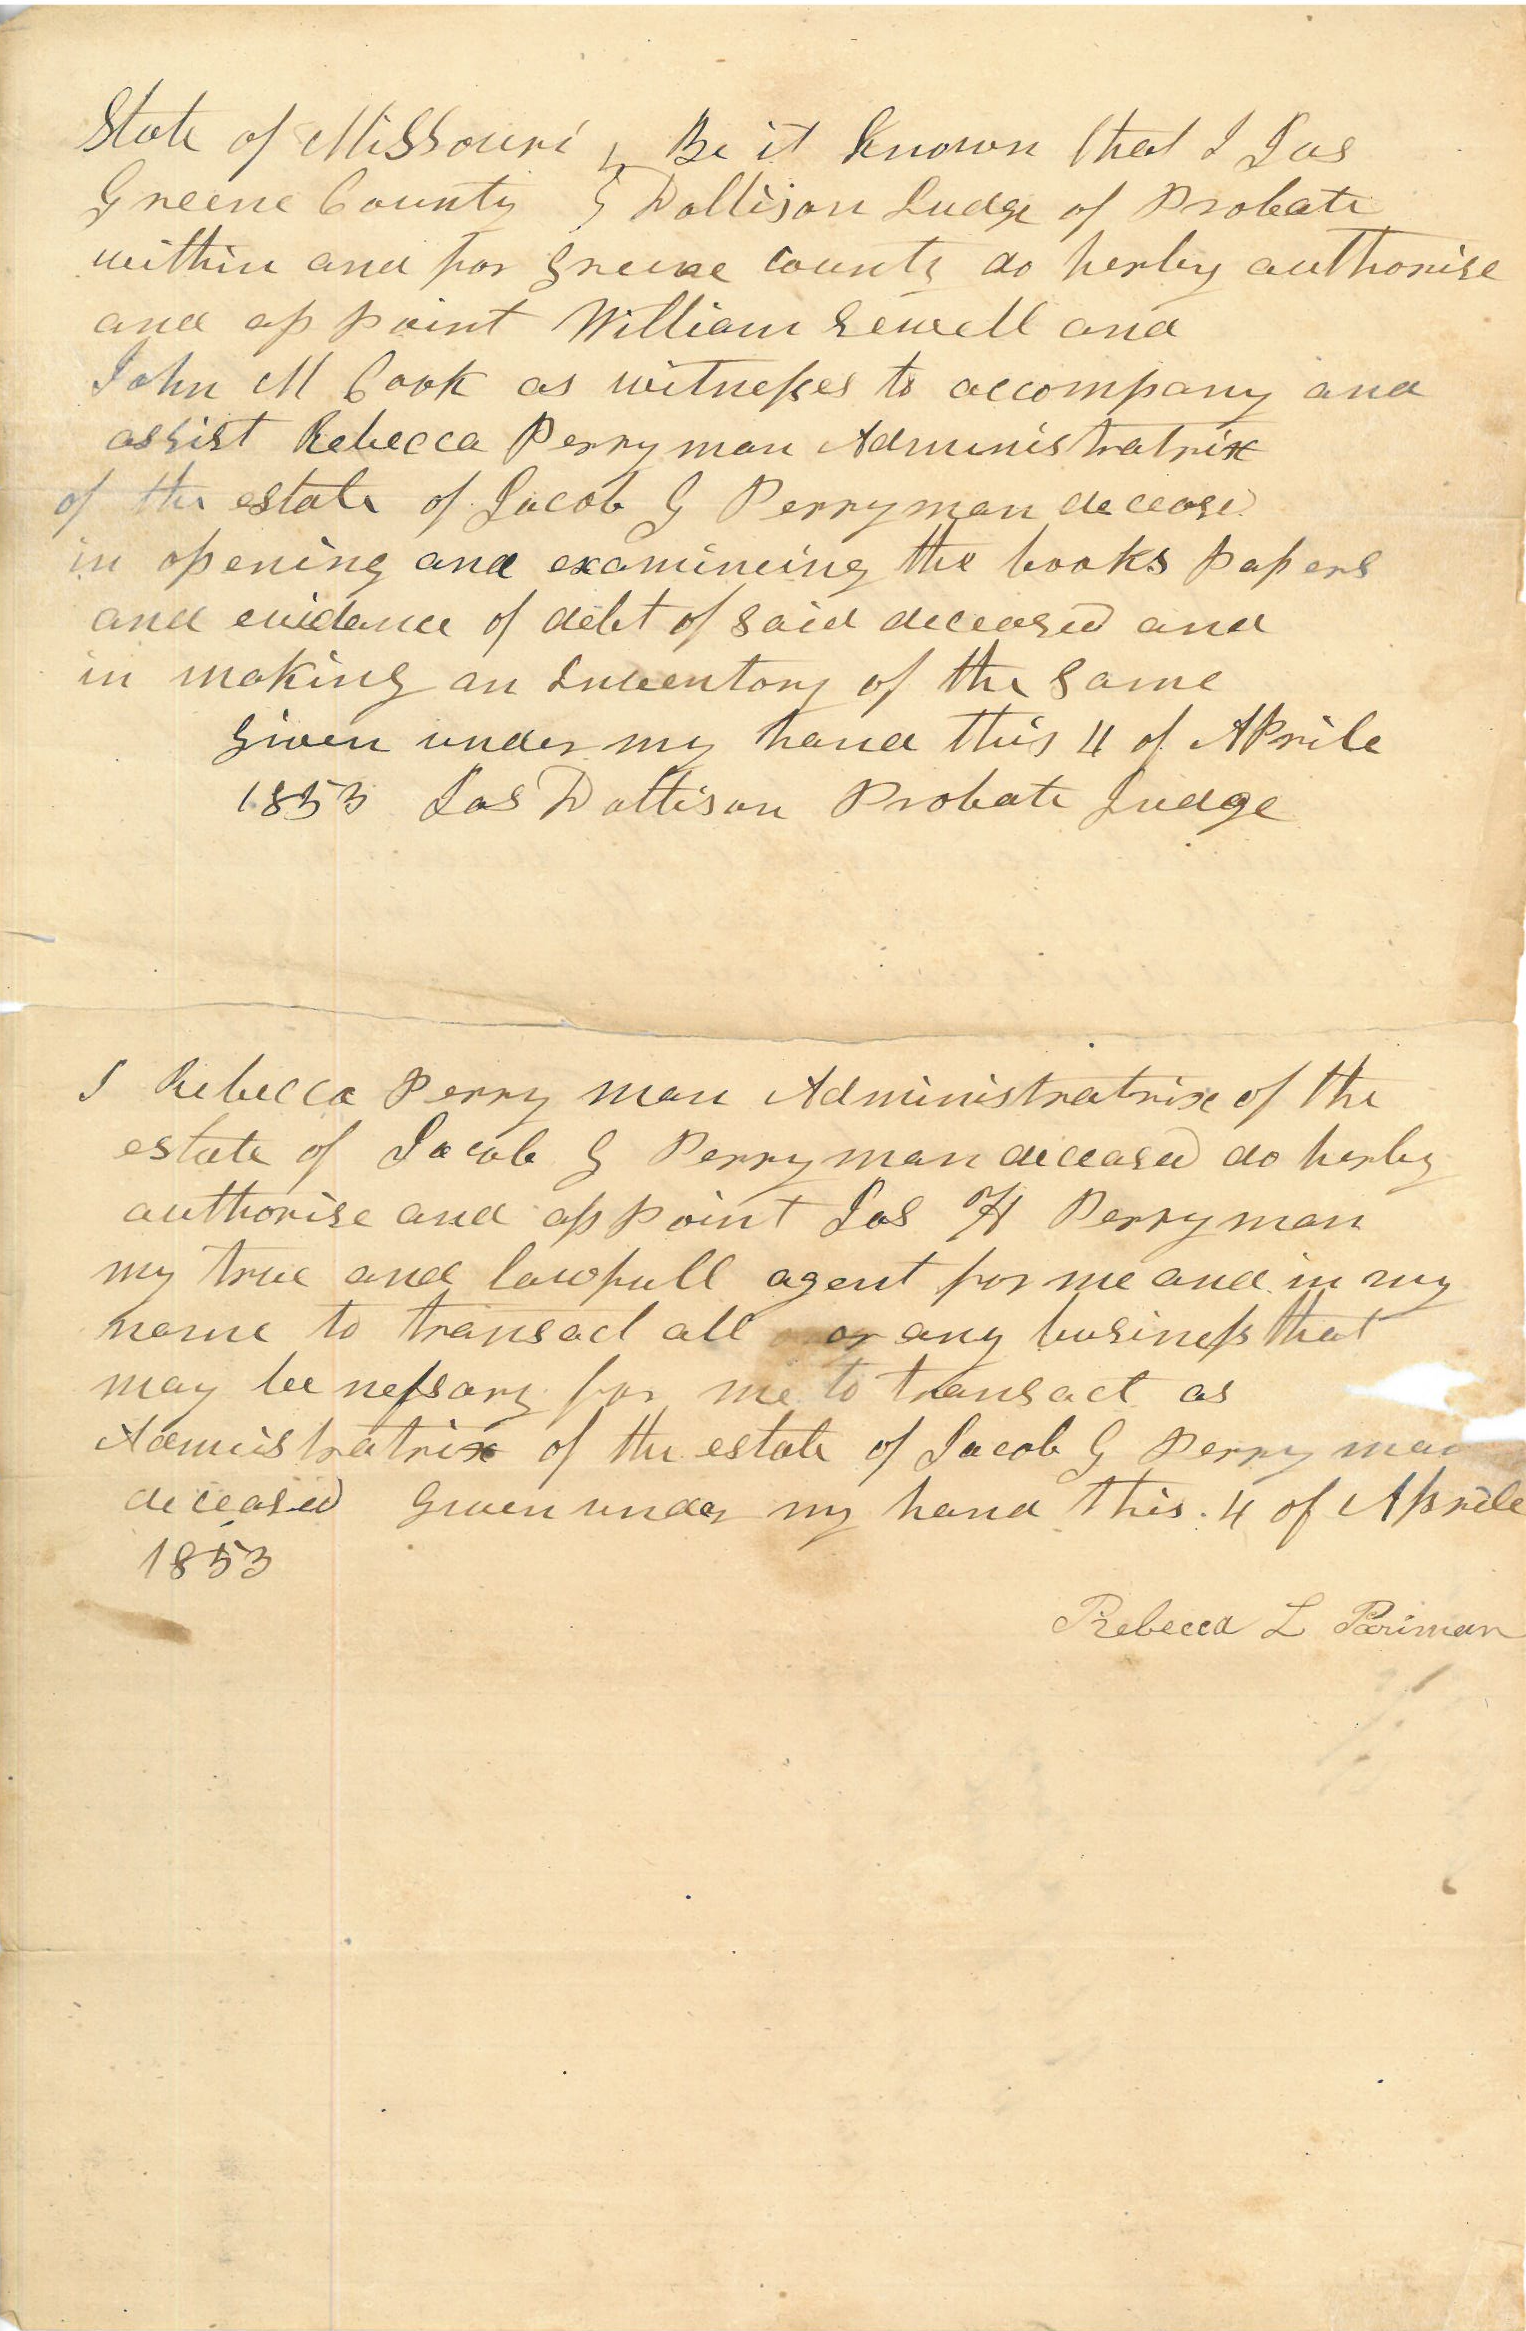 State of Missouri } Be it Known that I Jas
Greene County } Dollison Judge of Probate
within and for Greene county do herby authorise
and appoint William Sewell and
John M Cook as witnesses to accompany and
assist Rebecca Perryman Administratrix
of the estate of Jacob G Perryman deceased
in opening and examineing the books papers
and evidence of debt of said deceased and
in making an Inventory of the same
Given under my hand this 4 of APrile
1853 Jas Dollison Probate Judge
I Rebecca Perryman Administratrix of the
estate of Jacob G Perryman deceased do herby
authorise and appoint Jas H Perryman
my true and lawfull agent for me and in my
name to transact all or any business that
may be nessary for me to transact as
Admistratrix of the estate of Jacob G Perryman
deceased Given under my hand this 4 of Aprile
1853
Rebecca L Periman